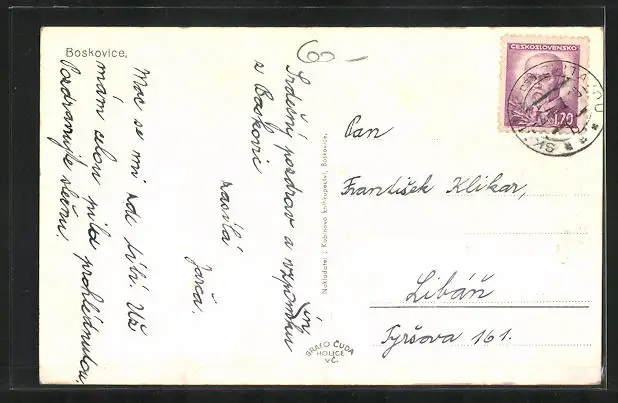 Boskovice,
6-
Srdečný pozdrav a vzpomínku
z Boskovic
zasílá
Jarča.
Moc se mi zde líbí. Už
mám celou pilu prohlédnutou.
Pozdravuje všechny.
Nakladatel: Kubínovo knihkupectví, Boskovice.
GRAFO ČUDA
HOLICE
V Č.
ČESKOSLOVENSKO
1.20
Pan
František Klikar,
Libáň
Tyršova 161.